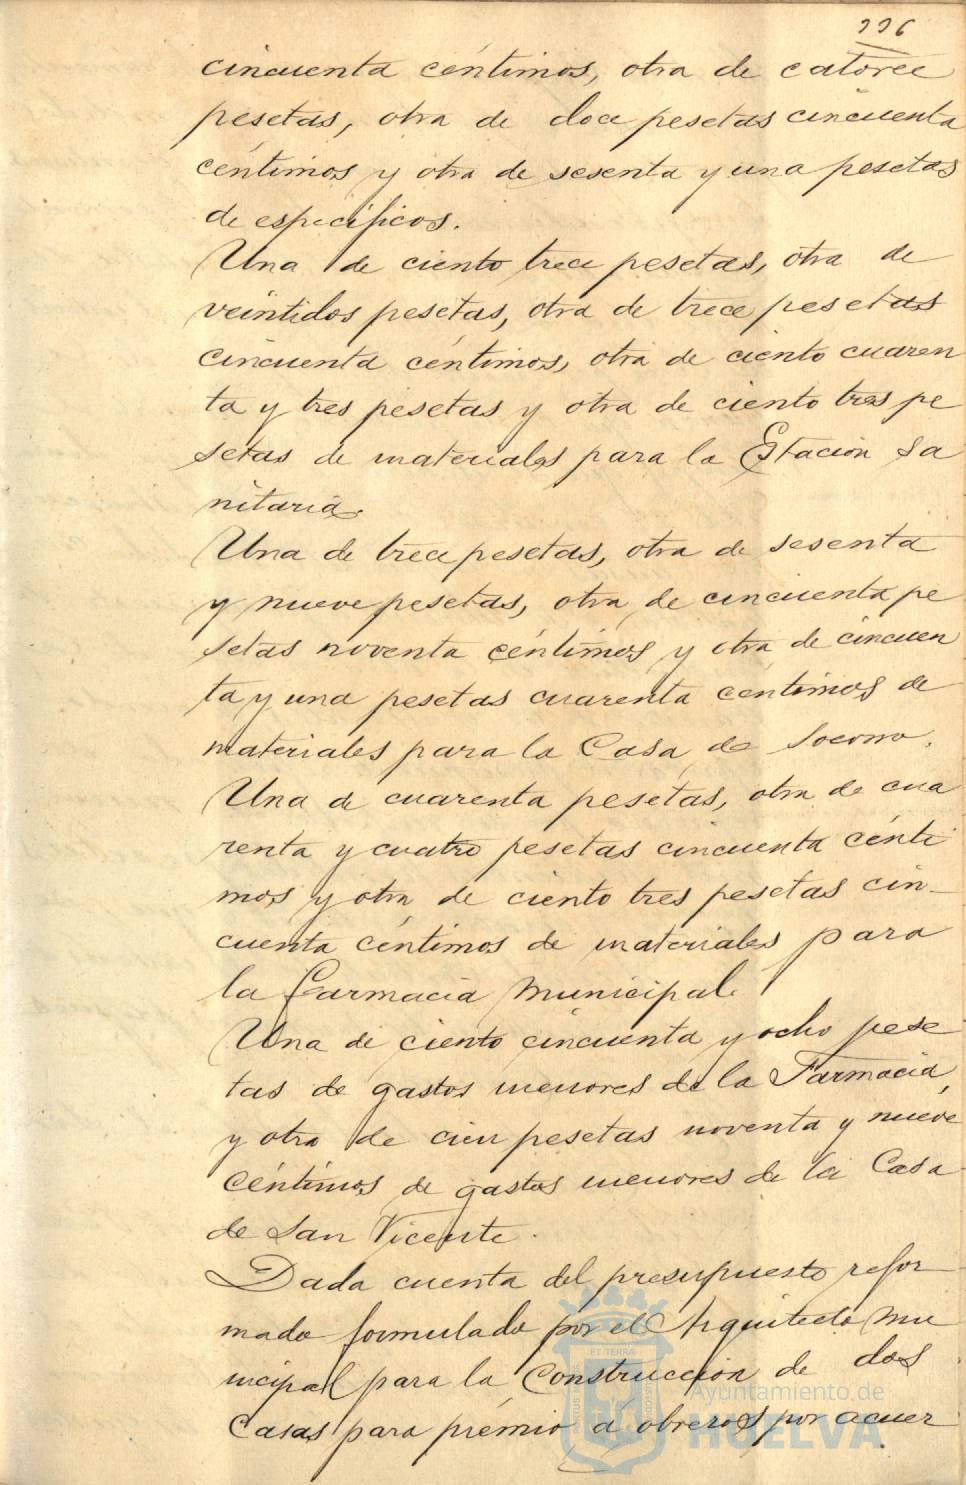 226
cincuenta céntimos, otra de catorce
pesetas, otra de doce pesetas cincuenta
céntimos y otra de sesenta y una pesetas
de específicos.
Una de ciento trece pesetas, otra de
veintidos pesetas, otra de trece pesetas
cincuenta céntimos, otra de ciento cuaren
ta y tres pesetas y otra de ciento tres pe
setas de materiales para la Estación Sa
nitaria.
Una de trece pesetas, otra de sesenta
y nueve pesetas, otra de cincuenta pe
setas noventa céntimos y otra de cincuen
ta y una pesetas cuarenta céntimos de
materiales para la Casa de Socorro.
Una de cuarenta pesetas, otra de cua
renta y cuatro pesetas cincuenta cénti
mos y otra de ciento tres pesetas cin-
cuenta céntimos de materiales para
la Farmacia Municipal.
Una de ciento cincuenta y ocho pese
tas de gastos menores de la Farmacia,
y otra de cien pesetas noventa y nueve
céntimos de gastos menores de la Casa
de San Vicente.
Dada cuenta del presupuesto refor
mado formulado por el Arquitecto Mu
nicipal para la construcción de dos
casas para premio á obreros por acuer
Ayuntamiento de
HUELVA